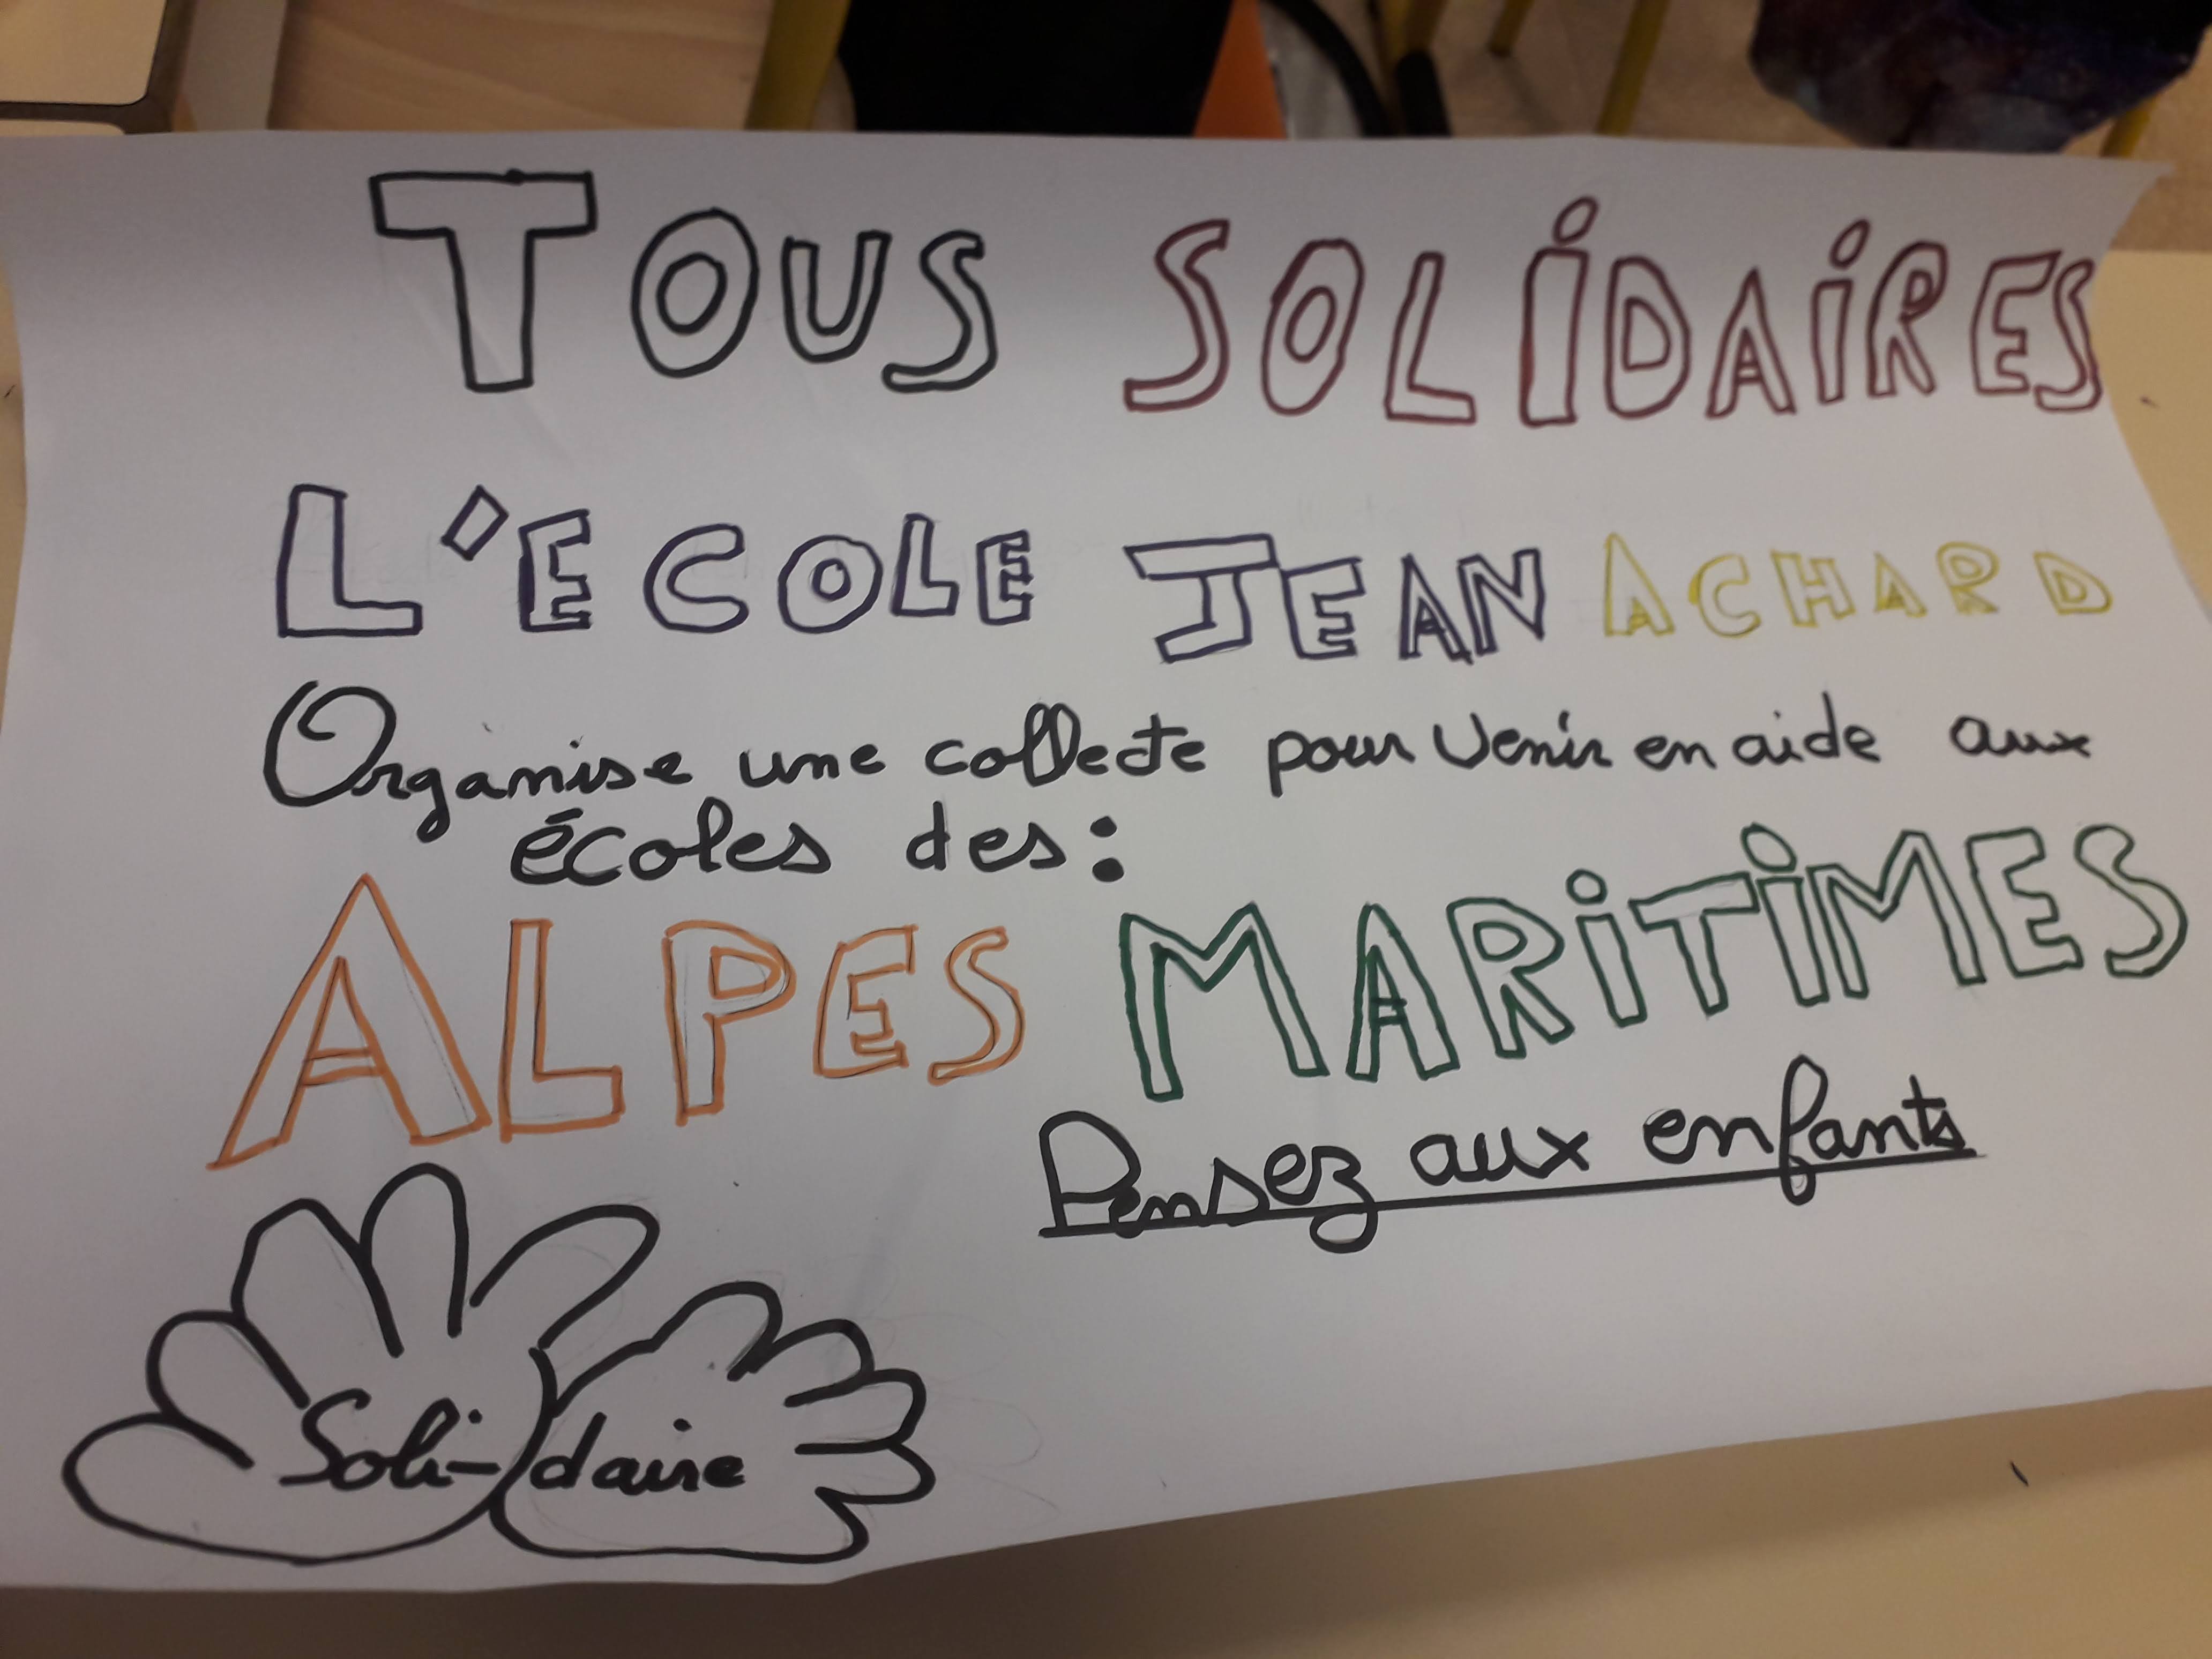 TOUS SOLiDAiRES
L'ECOLE JEAN ACHARD
Organise une collecte pour Venir en aide aux
écoles des :
ALPES MARiTiMES
Pensez aux enfants
Soli-daire